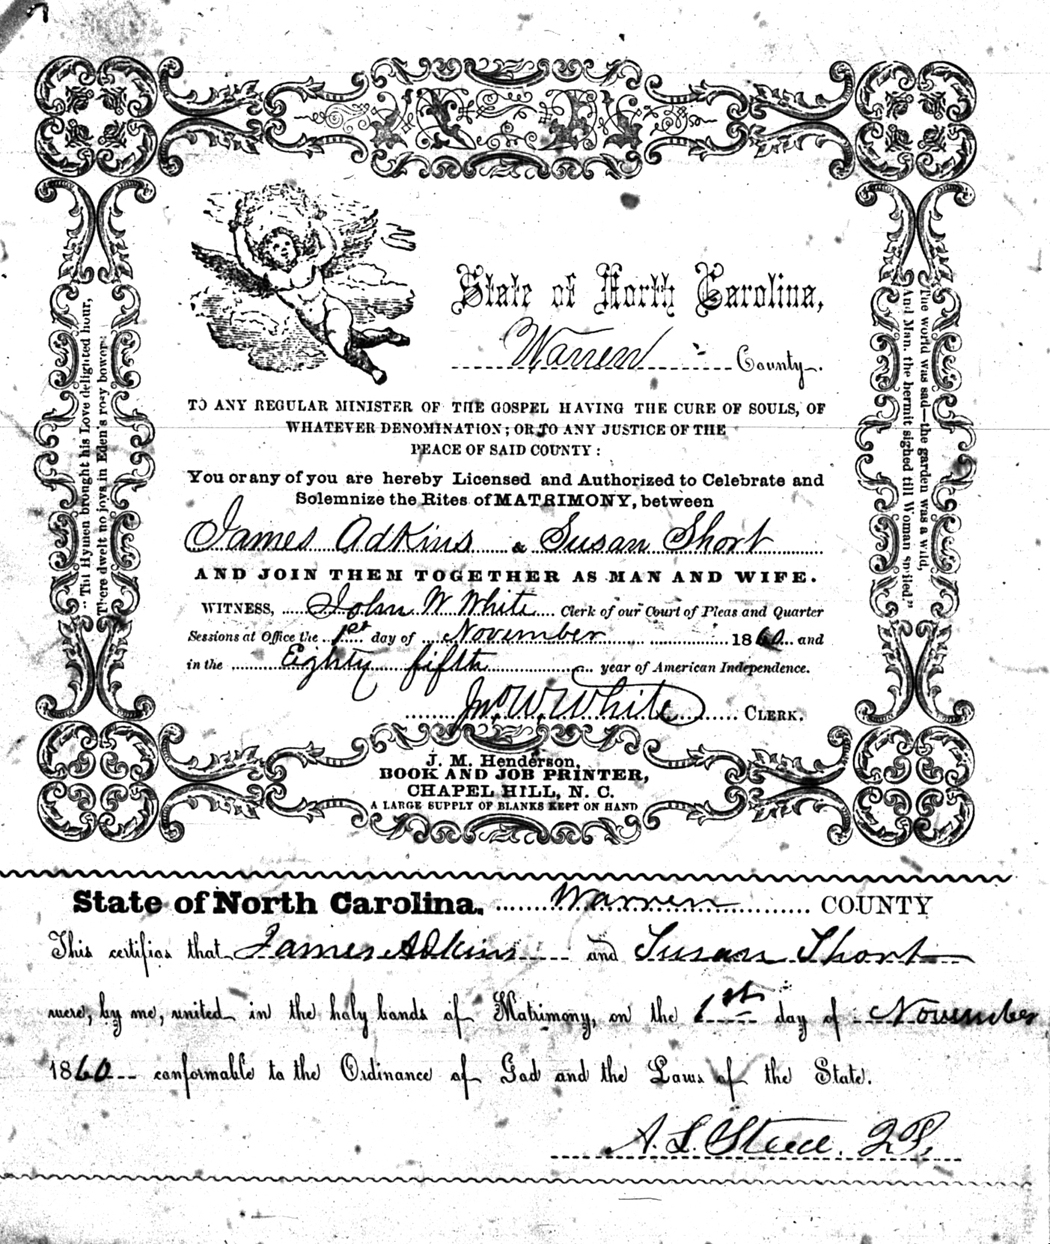 State of North Carolina,
Warren County.
TO ANY REGULAR MINISTER OF THE GOSPEL HAVING THE CURE OF SOULS, OF
WHATEVER DENOMINATION; OR TO ANY JUSTICE OF THE
PEACE OF SAID COUNTY:
You or any of you are hereby Licensed and Authorized to Celebrate and
Solemnize the Rites of MATRIMONY, between
James Adkins & Susan Short
AND JOIN THEM TOGETHER AS MAN AND WIFE.
WITNESS, John W White Clerk of our Court of Pleas and Quarter
Sessions at Office the 1st day of November 1860 and
in the Eighty fifth year of American Independence.
Jno. W. White CLERK.
"Till Hymen brought his Love-delighted hour,
There dwelt no joys in Eden's rosy bower:
The world was sad—the garden was a wild,
And Man, the hermit sighed till Woman smiled."
J. M. Henderson,
BOOK AND JOB PRINTER,
CHAPEL HILL, N. C.
A LARGE SUPPLY OF BLANKS KEPT ON HAND
State of North Carolina. Warren COUNTY
This certifies that James Adkins and Susan Short
were, by me, united in the holy bands of Matrimony, on the 1st day of November
1860 conformable to the Ordinance of God and the Laws of the State.
A. L. Steed. J.P.